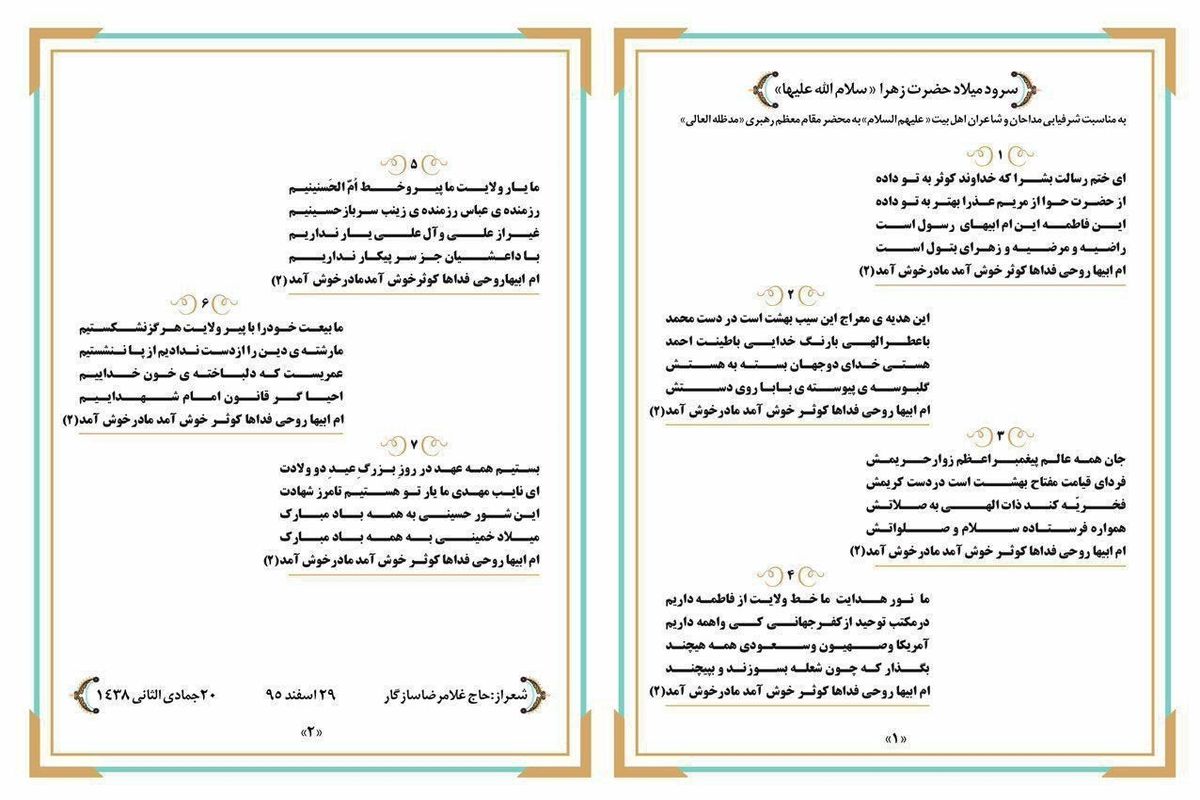 سرود میلاد حضرت زهرا «سلام الله علیها»
به مناسبت شرفیابی مداحان و شاعران اهل بیت «علیهم السلام» به محضر مقام معظم رهبری «مدظله العالی»
۱
ای ختم رسالت بشرا که خداوند کوثر به تو داده
از حضرت حوا از مریم عذرا بهتر به تو داده
این فاطمه این ام ابیهای رسول است
راضیه و مرضیه و زهرای بتول است
ام ابیها روحی فداها کوثر خوش آمد مادرخوش آمد(۲)
۲
این هدیه ی معراج این سیب بهشت است در دست محمد
باعطر الهی بارنگ خدایی باطینت احمد
هستی خدای دوجهان بسته به هستش
گلبوسه ی پیوسته ی بابا روی دستش
ام ابیها روحی فداها کوثر خوش آمد مادرخوش آمد(۲)
۳
جان همه عالم پیغمبر اعظم زوار حریمش
فردای قیامت مفتاح بهشت است دردست کریمش
فخریّه کند ذات الهی به صلاتش
همواره فرستاده سلام و صلواتش
ام ابیها روحی فداها کوثر خوش آمد مادرخوش آمد(۲)
۴
ما نور هدایت ما خط ولایت از فاطمه داریم
درمکتب توحید ازکفرجهانی کی واهمه داریم
آمریکا وصهیون وسعودی همه هیچند
بگذار که چون شعله بسوزند و بپیچند
ام ابیها روحی فداها کوثر خوش آمد مادرخوش آمد(۲)
«۱»
۵
ما یار ولایت ما پیرو خط اُمّ الحَسنینیم
رزمنده ی عباس رزمنده ی زینب سربازحسینیم
غیر از علی وآل علی یار نداریم
با داعشیان جز سر پیکار نداریم
ام ابیهاروحی فداها کوثرخوش آمدمادرخوش آمد(۲)
۶
ما بیعت خودرا با پیر ولایت هرگزنشکستیم
مارشته ی دین را ازدست ندادیم از پا ننشستیم
عمریست که دلباخته ی خون خداییم
احیا گر قانون امام شهداییم
ام ابیها روحی فداها کوثر خوش آمد مادرخوش آمد(۲)
۷
بستیم همه عهد در روزِ بزرگِ عیدِ دو ولادت
ای نایب مهدی ما یار تو هستیم تامرز شهادت
این شور حسینی به همه باد مبارک
میلاد خمینی به همه باد مبارک
ام ابیها روحی فداها کوثر خوش آمد مادرخوش آمد(۲)
شعراز:حاج غلامرضاسازگار ۲۹ اسفند ۹۵ ۲۰جمادی الثانی ۱۴۳۸
«۲»